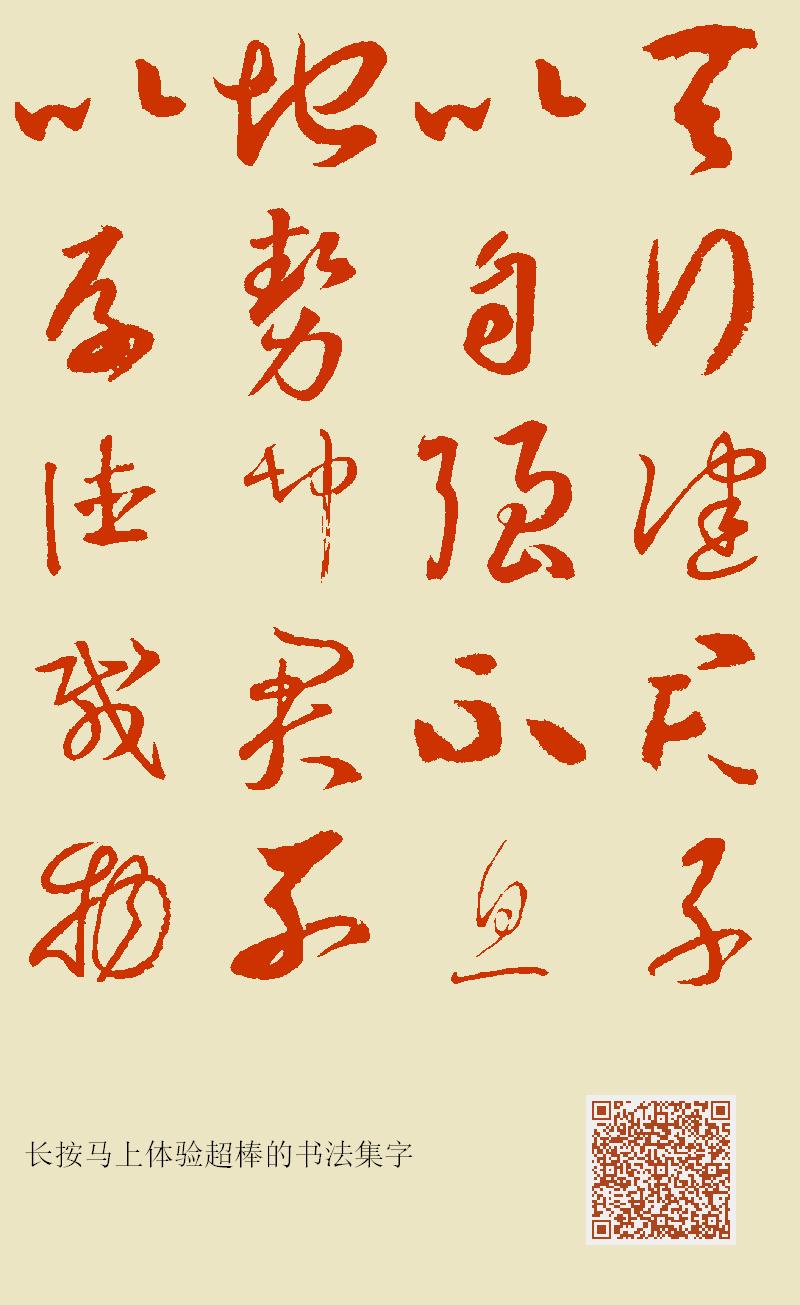 天行健君子
以自强不息
地势坤君子
以厚德载物
长按马上体验超棒的书法集字